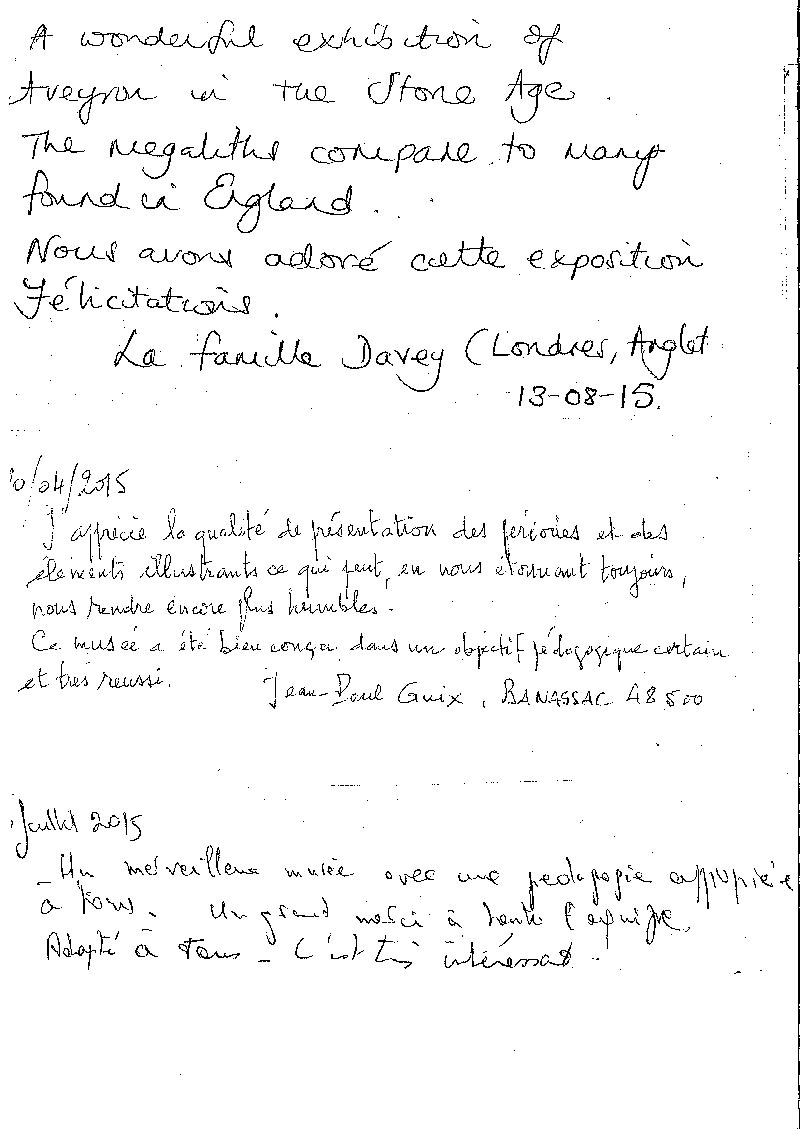 A wonderful exhibition of
Aveyron in the Stone Age.
The megaliths compare to many
found in England.
Nous avons adoré cette exposition
Félicitations.
La famille Davey (Londres, Anglet
13-08-15.
0/04/2015
J'apprécie la qualité de présentation des périodes et des
élements illustrants ce qui peut, en nous étonnant toujours,
nous rendre encore plus humbles.
Ce musée a été bien conçu dans un objectif pédagogique certain
et très reussi. Jean-Paul Guix, BANASSAC 48500
Juillet 2015
_ Un merveilleux musée avec une pedagogie appropriée
à tous. Un grand merci à toute l'équipe
Adapté à tous _ C'est très intéressant.